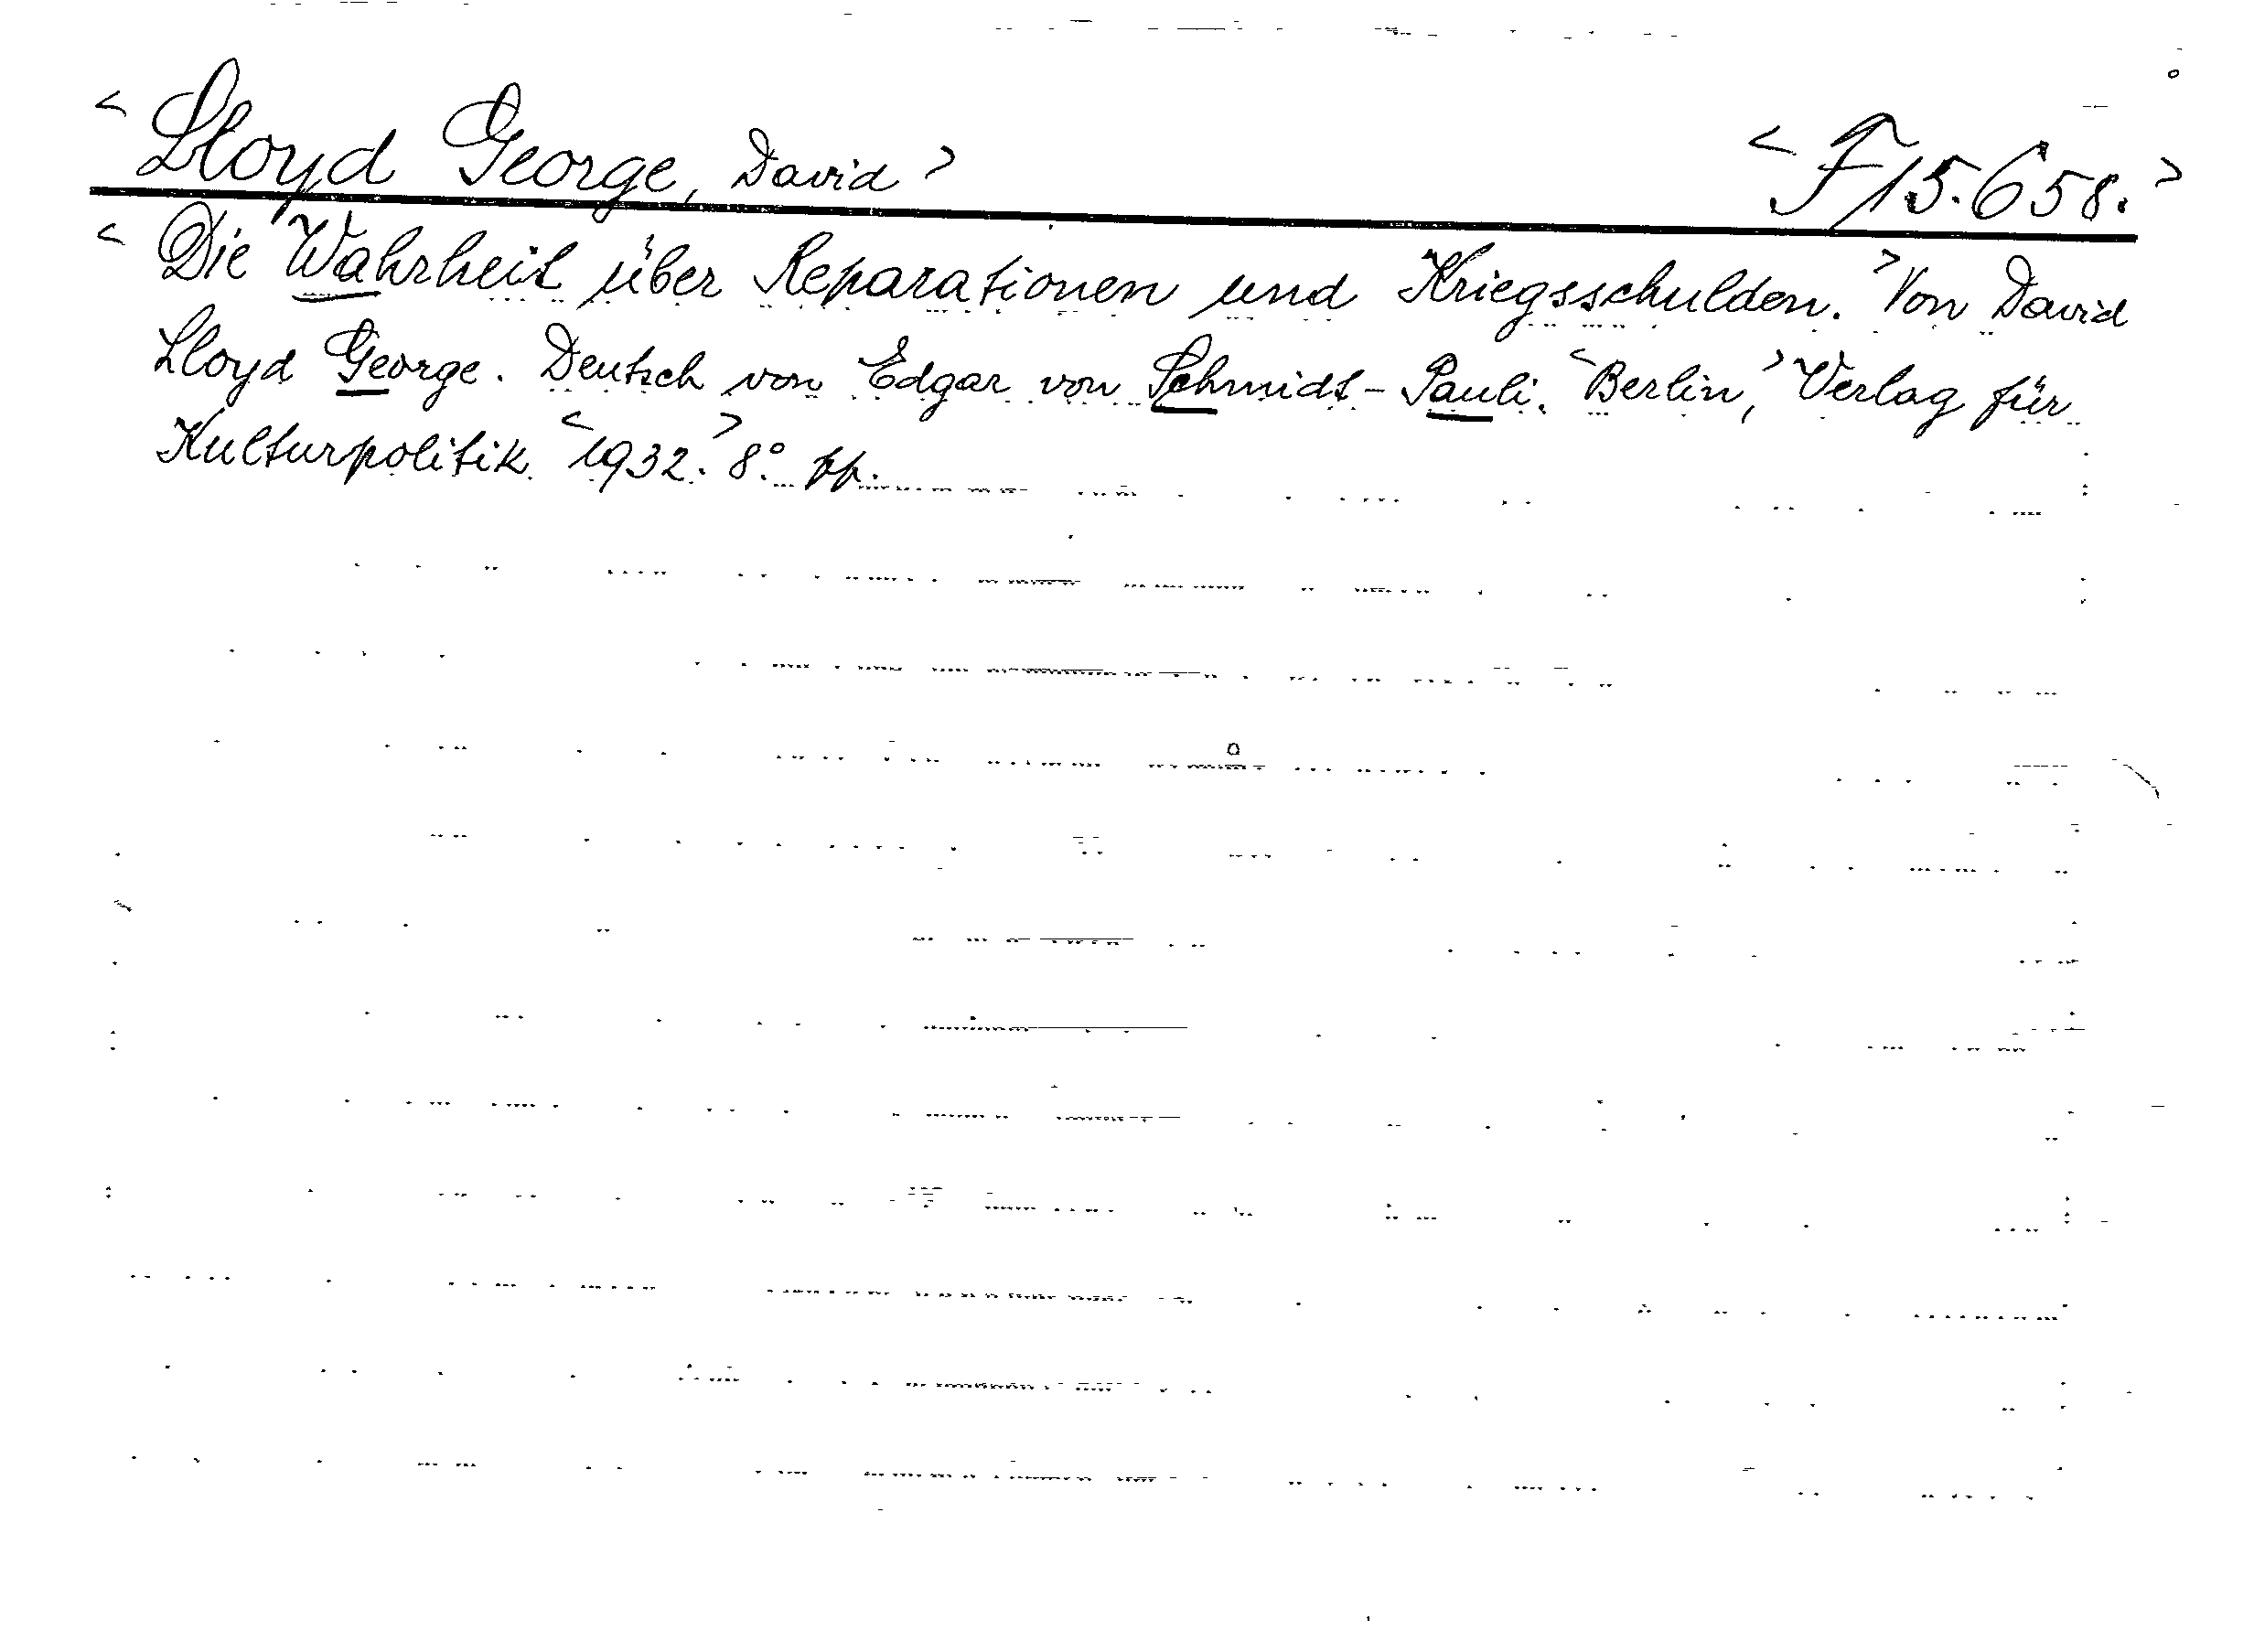 < Lloyd George, David > < F 15.658. >
< Die Wahrheit über Reparationen und Kriegsschulden. > Von David
Lloyd George. Deutsch von Edgar von Schmidt-Pauli. < Berlin, > Verlag für
Kulturpolitik < 1932. > 8°. pp.